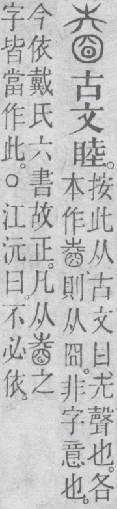 古文睦。按此从古文目圥聲也。各
本作𡍱則从囧。非字意也。
今依戴氏六書故正。凡从𡍱之
字皆當作此。○江沅曰。不必依。